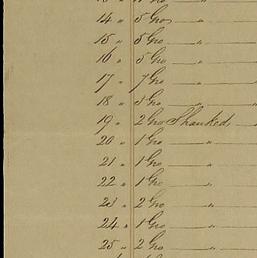 14 " 5 Gro — "
15 " 5 Gro — "
16 " 5 Gro — "
17 " 7 Gro — "
18 " 3 Gro — "
19 " 2 Gro Shanked —
20 " 1 Gro — "
21 " 1 Gro — "
22 " 1 Gro — "
23 " 2 Gro — "
24 " 1 Gro — "
25 " 2 Gro — "